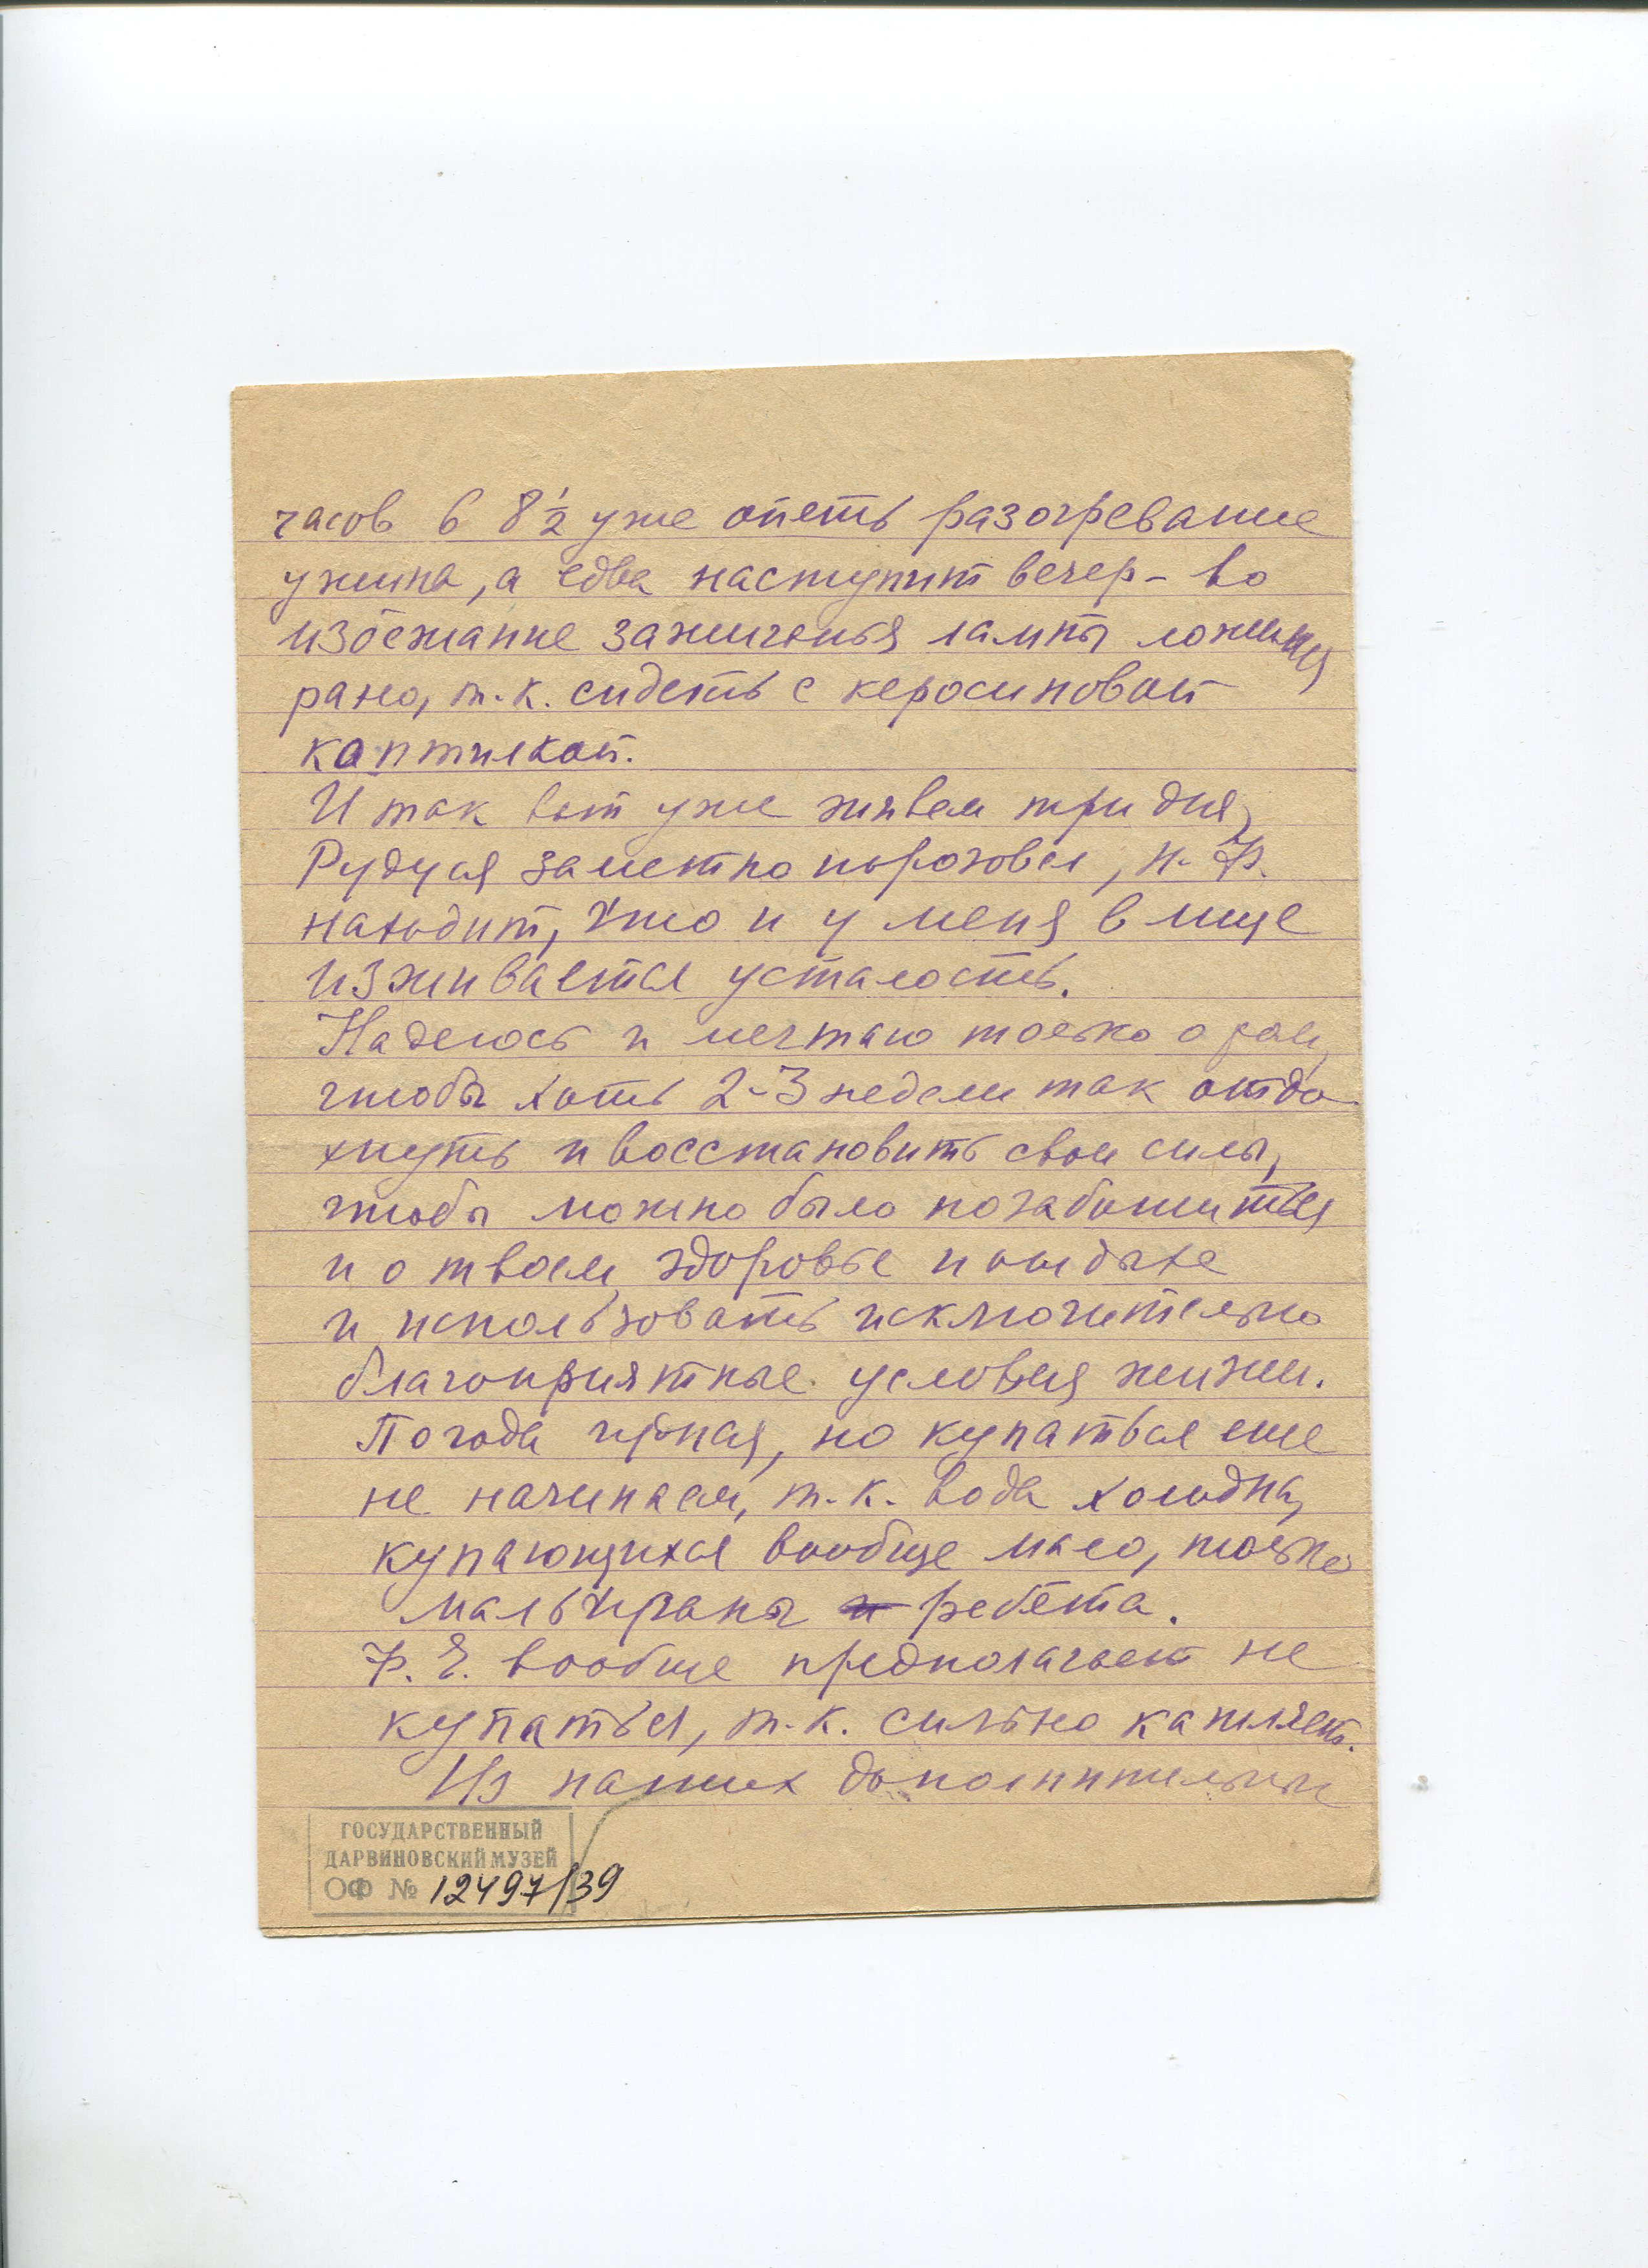 часов в 8 ½ уже опять разогревание
ужина, а едва наступит вечер – во
избежание зажиганья лампы ложимся
рано, т.к. сидеть с керосиновой
коптилкой.
И так вот уже живем три дня,
Рудуся заметно порозовел, Н. Ф.
находит, что и у меня в лице
изживается усталость.
Надеюсь и мечтаю только о
чтобы хоть 2-3 недели так отдо-
хнуть и восстановить свои силы,
чтобы можно было позаботиться
и о твоем здоровье и отдыхе
и использовать исключительно
благоприятные условия жизни.
Погода чудная, но купаться еще
не начинаем, т.к. вода холодна,
купающихся вообще мало, только
мальчуганы ребята.
Ф. Е. вообще предполагает не
купаться, т.к. сильно кашляет.
Из наших дополнительных
ГОСУДАРСТВЕННЫЙ
ДАРВИНОВСКИЙ МУЗЕЙ
ОФ № 12497/39